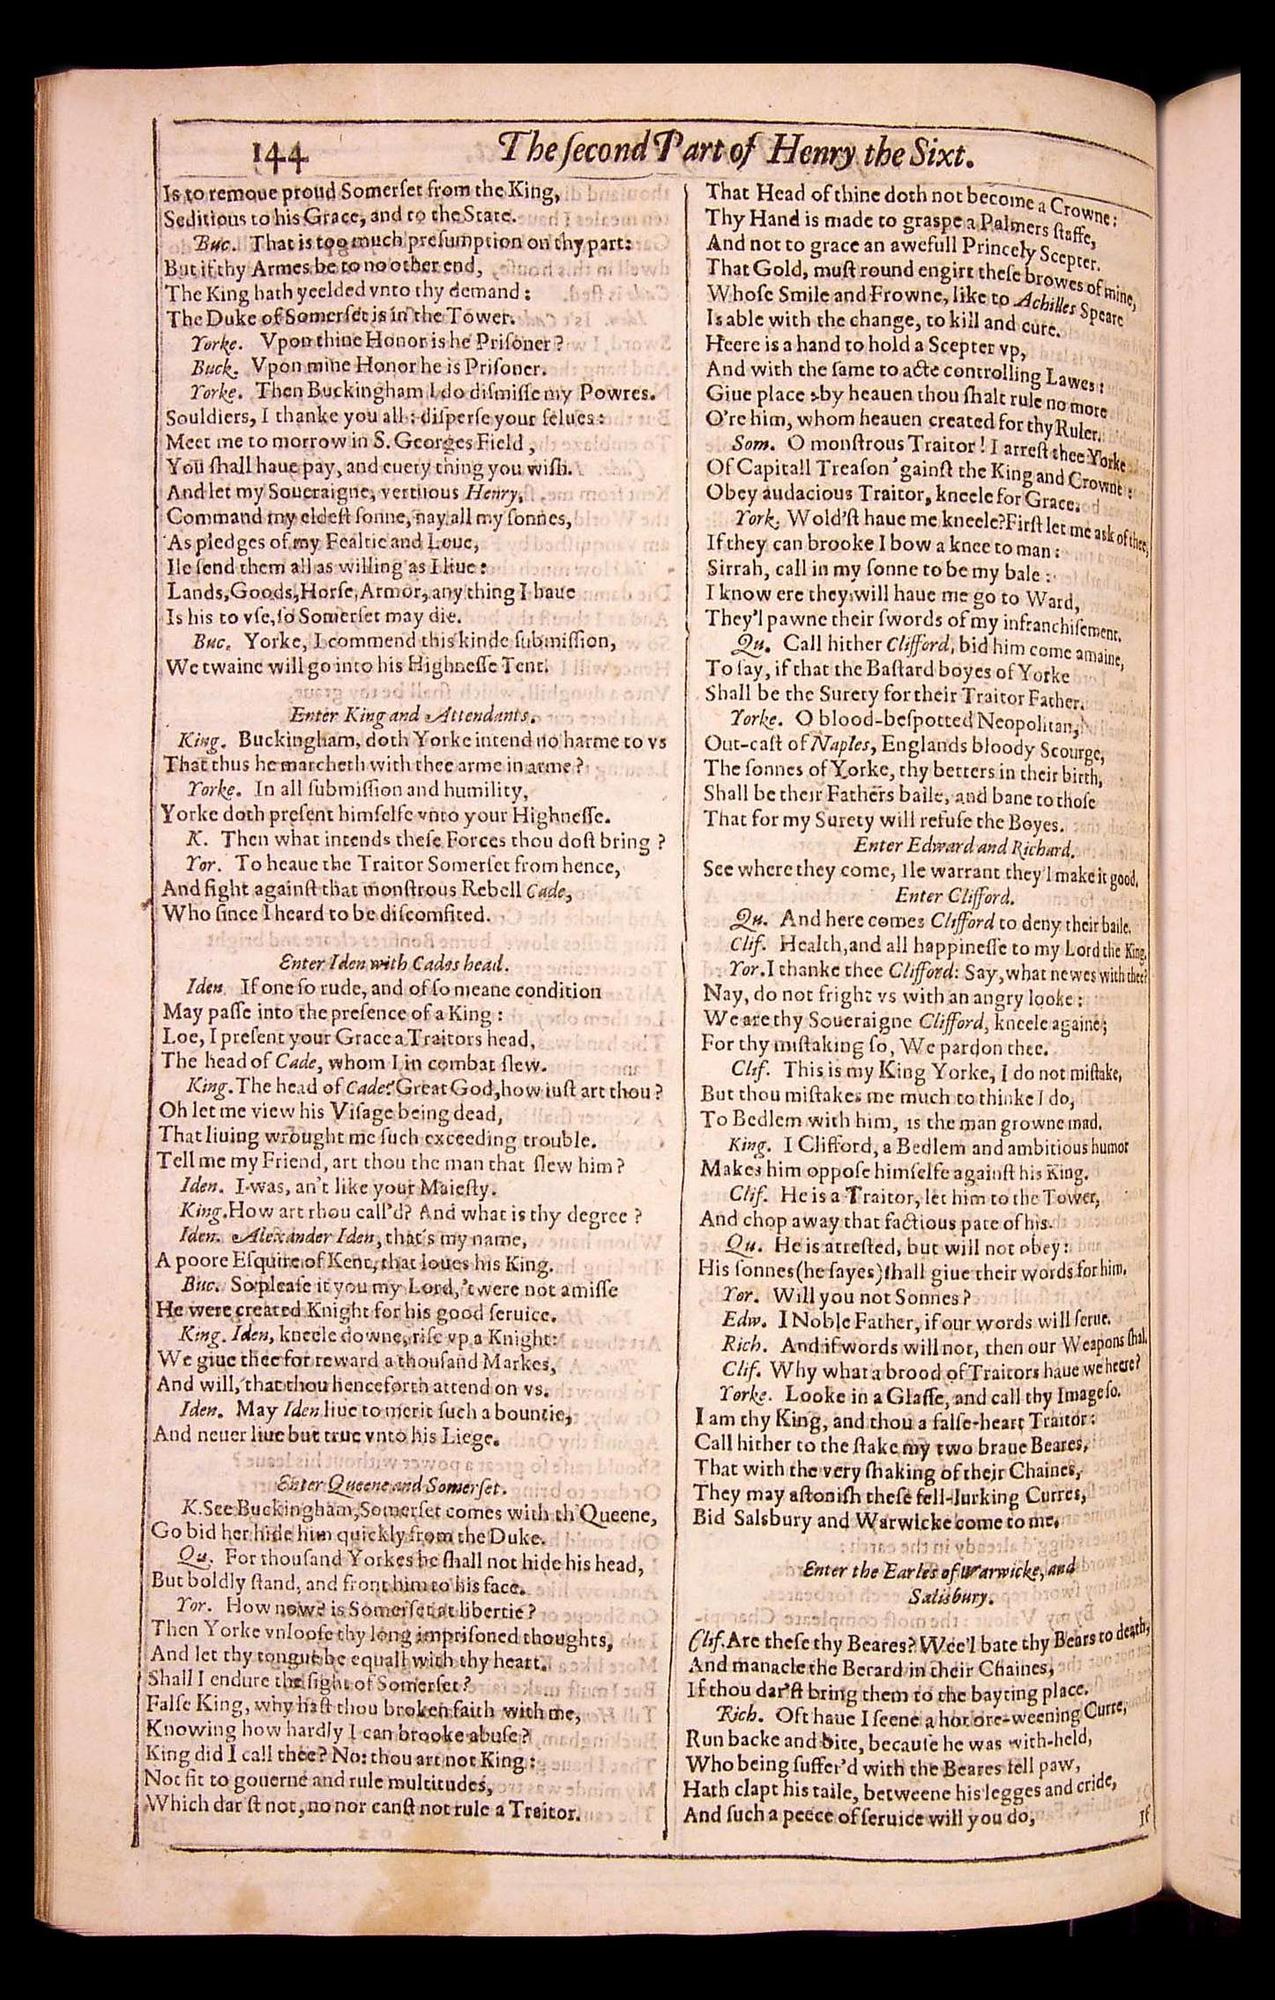 144 The ſecond Part of Henry the Sixt.
Is to remoue proud Somerſet from the King,
Seditious to his Grace, and to the State.
Buc. That is too much preſumption on thy part:
But if thy Armes be to no other end,
The King hath yeelded vnto thy demand:
The Duke of Somerſet is in the Tower.
Yorke. Vpon thine Honor is he Priſoner?
Buck. Vpon mine Honor he is Priſoner.
Yorke. Then Buckingham I do diſmiſſe my Powres.
Souldiers, I thanke you all: diſperſe your ſelues:
Meet me to morrow in S. Georges Field,
You ſhall haue pay, and euery thing you wiſh.
And let my Soueraigne, vertuous Henry,
Command my eldeſt ſonne, nay all my ſonnes,
As pledges of my Fealtie and Loue,
Ile ſend them all as willing as I liue:
Lands, Goods, Horſe, Armor, any thing I haue
Is his to vſe, ſo Somerſet may die.
Buc. Yorke, I commend this kinde ſubmiſſion,
We twaine will go into his Highneſſe Tent.
Enter King and Attendants.
King. Buckingham, doth Yorke intend no harme to vs
That thus he marcheth with thee arme in arme?
Yorke. In all ſubmiſſion and humility,
Yorke doth preſent himſelfe vnto your Highneſſe.
K. Then what intends theſe Forces thou doſt bring?
Yor. To heaue the Traitor Somerſet from hence,
And fight againſt that monſtrous Rebell Cade,
Who ſince I heard to be diſcomfited.
Enter Iden with Cades head.
Iden. If one ſo rude, and of ſo meane condition
May paſſe into the preſence of a King:
Loe, I preſent your Grace a Traitors head,
The head of Cade, whom I in combat ſlew.
King. The head of Cade? Great God, how iuſt art thou?
Oh let me view his Viſage being dead,
That liuing wrought me ſuch exceeding trouble.
Tell me my Friend, art thou the man that ſlew him?
Iden. I was, an't like your Maieſty.
King. How art thou call'd? And what is thy degree?
Iden. Alexander Iden, that's my name,
A poore Eſquire of Kent, that loues his King.
Buc. So pleaſe it you my Lord, 'twere not amiſſe
He were created Knight for his good ſeruice.
King. Iden, kneele downe, riſe vp a Knight:
We giue thee for reward a thouſand Markes,
And will, that thou henceforth attend on vs.
Iden. May Iden liue to merit ſuch a bountie,
And neuer liue but true vnto his Liege.
Enter Queene and Somerſet.
K. See Buckingham, Somerſet comes with th'Queene,
Go bid her hide him quickly from the Duke.
Qu. For thouſand Yorkes he ſhall not hide his head,
But boldly ſtand, and front him to his face.
Yor. How now? is Somerſet at libertie?
Then Yorke vnlooſe thy long impriſoned thoughts,
And let thy tongue be equall with thy heart.
Shall I endure the ſight of Somerſet?
Falſe King, why haſt thou broken faith with me,
Knowing how hardly I can brooke abuſe?
King did I call thee? No: thou art not King:
Not fit to gouerne and rule multitudes,
Which dar'ſt not, no nor canſt not rule a Traitor.
That Head of thine doth not become a Crowne:
Thy Hand is made to graspe a Palmers ſtaffe,
And not to grace an awefull Princely Scepter.
That Gold, muſt round engirt theſe browes of mine,
Whoſe Smile and Frowne, like to Achilles Speare
Is able with the change, to kill and cure.
Heere is a hand to hold a Scepter vp,
And with the ſame to acte controlling Lawes:
Giue place: by heauen thou ſhalt rule no more
O're him, whom heauen created for thy Ruler.
Som. O monſtrous Traitor! I arreſt thee Yorke
Of Capitall Treaſon 'gainſt the King and Crowne:
Obey audacious Traitor, kneele for Grace.
York. Wold'ſt haue me kneele? Firſt let me ask of thee,
If they can brooke I bow a knee to man:
Sirrah, call in my ſonne to be my bale:
I know ere they will haue me go to Ward,
They'l pawne their ſwords of my infranchiſement.
Qu. Call hither Clifford, bid him come amaine,
To ſay, if that the Baſtard boyes of Yorke
Shall be the Surety for their Traitor Father.
Yorke. O blood-beſpotted Neopolitan,
Out-caſt of Naples, Englands bloody Scourge,
The ſonnes of Yorke, thy betters in their birth,
Shall be their Fathers baile, and bane to thoſe
That for my Surety will refuſe the Boyes.
Enter Edward and Richard.
See where they come, Ile warrant they'l make it good.
Enter Clifford.
Qu. And here comes Clifford to deny their baile.
Clif. Health, and all happineſſe to my Lord the King.
Yor. I thanke thee Clifford: Say, what newes with thee?
Nay, do not fright vs with an angry looke:
We are thy Soueraigne Clifford, kneele againe;
For thy miſtaking ſo, We pardon thee.
Clif. This is my King Yorke, I do not miſtake,
But thou miſtakes me much to thinke I do,
To Bedlem with him, is the man growne mad.
King. I Clifford, a Bedlem and ambitious humor
Makes him oppoſe himſelfe againſt his King.
Clif. He is a Traitor, let him to the Tower,
And chop away that factious pate of his.
Qu. He is atreſted, but will not obey:
His ſonnes (he ſayes) ſhall giue their words for him.
Yor. Will you not Sonnes?
Edw. I Noble Father, if our words will ſerue.
Rich. And if words will not, then our Weapons ſhal.
Clif. Why what a brood of Traitors haue we heere?
Yorke. Looke in a Glaſſe, and call thy Image ſo.
I am thy King, and thou a falſe-heart Traitor:
Call hither to the ſtake my two braue Beares,
That with the very ſhaking of their Chaines,
They may aſtoniſh theſe fell-lurking Curres,
Bid Salsbury and Warwicke come to me.
Enter the Earles of Warwicke, and
Salisbury.
Clif. Are theſe thy Beares? Wee'l bate thy Bears to death,
And manacle the Berard in their Chaines,
If thou dar'ſt bring them to the bayting place.
Rich. Oft haue I ſeene a hot ore-weening Curre,
Run backe and bite, becauſe he was with-held,
Who being ſuffer'd with the Beares fell paw,
Hath clapt his taile, betweene his legges and cride,
And ſuch a peece of ſeruice will you do,
If